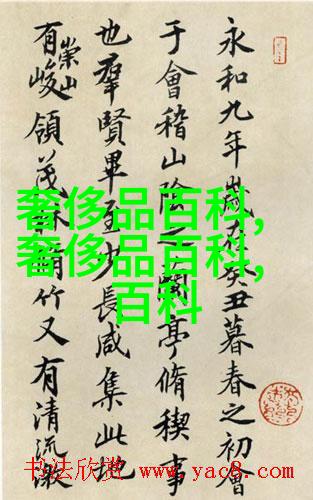 永和九年歲在癸丑暮春之初會
于會稽山陰之蘭亭脩稧事
也羣賢畢至少長咸集此地
有崇山峻領茂林脩竹又有清流激
奢侈品百科,
奢侈品百科,
百科
书法欣赏 www.yac8.com